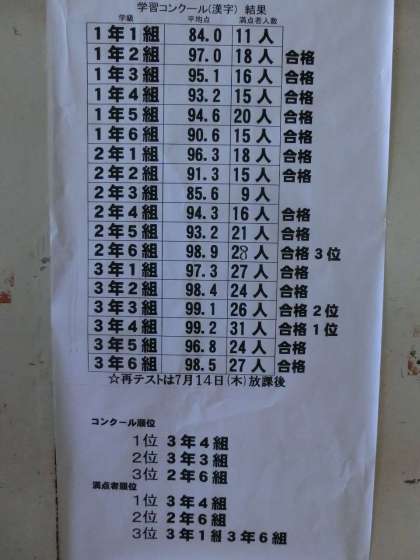 学習コンクール(漢字) 結果
学級 平均点 満点者人数
1年1組 84.0 11人
1年2組 97.0 18人 合格
1年3組 95.1 16人 合格
1年4組 93.2 15人 合格
1年5組 94.6 20人 合格
1年6組 90.6 15人 合格
2年1組 96.3 18人 合格
2年2組 91.3 15人 合格
2年3組 85.6 9人
2年4組 94.3 16人 合格
2年5組 93.2 21人 合格
2年6組 98.9 28人 合格 3位
3年1組 97.3 27人 合格
3年2組 98.4 24人 合格
3年3組 99.1 26人 合格 2位
3年4組 99.2 31人 合格 1位
3年5組 96.8 24人 合格
3年6組 98.5 27人 合格
☆再テストは7月14日(木)放課後
コンクール順位
1位 3年4組
2位 3年3組
3位 2年6組
満点者順位
1位 3年4組
2位 2年6組
3位 3年1組 3年6組